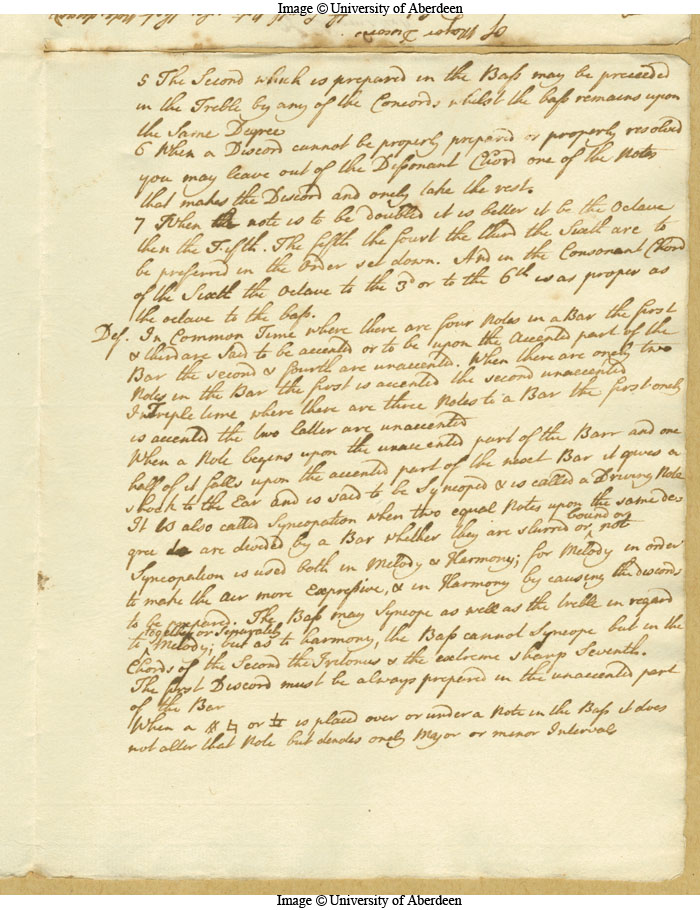 Image © University of Aberdeen
Of Thorou
5 The Second which is prepared in the Bass may be preceeded
in the Treble by any of the Concords whilst the bass remains upon
the Same Degree
6 When a Discord cannot be properly prepared or properly resolved
you may leave out of the Dissonant Chord one of the Notes
that makes the Discord and onely take the rest.
7 When the note is to be doubled it is better it be the Octave
then the Fifth. The fifth the fourt the third the Sixth are to
be preferred in the Order set down. And in the Consonant Chord
of the Sixth the Octave to the 3d or to the 6th is as proper as
the octave to the bass.
Def. In Common Time where there are four Notes in a Bar the first
& third are said to be accented or to be upon the accented part of the
Bar the second & fourth are unaccented. When there are onely two
Notes in the Bar the first is accented the second unaccented
In Triple time where there are three Notes to a Bar the first onely
is accented the two latter are unaccented
When a Note begins upon the unaccented part of the Barr and one
half of it falls upon the accented part of the next Bar it gives a
shock to the Ear and is said to be Syncoped & is called a Driving Note
It is also called Syncopation when two equal Notes upon the same de
gree are divided by a Bar whether they are slurred or bound or not
Syncopation is used both in Melody & Harmony; for Melody in order
to make the air more Expressive, & in Harmony by causing the discords
to be prepared. The Bass may Syncope as well as the treble in regard
together or Separately
to Melody; but as to harmony, the Bass cannot Syncope but in the
Chords of the Second the Tritonus & the extreme sharp Seventh.
The first Discord must be always prepared in the unaccented part
of the Bar
When a # ♮ or ♭ is placed over or under a Note in the Bass it does
not alter that Note but denotes onely Major or minor Intervals
Image © University of Aberdeen